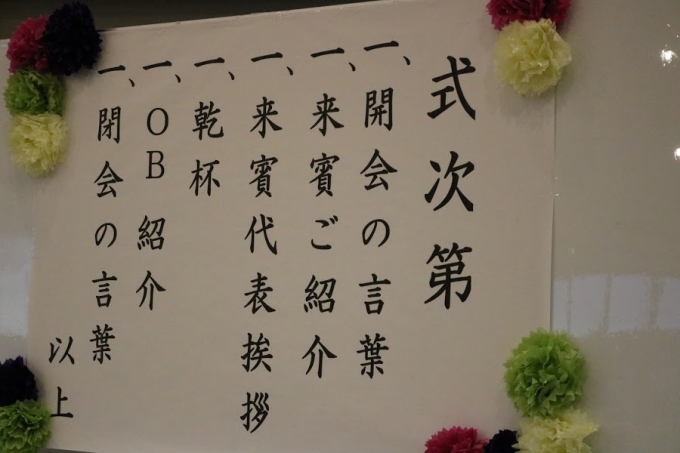 式次第
一、開会の言葉
一、来賓ご紹介
一、来賓代表挨拶
一、乾杯
一、OB紹介
一、閉会の言葉
以上